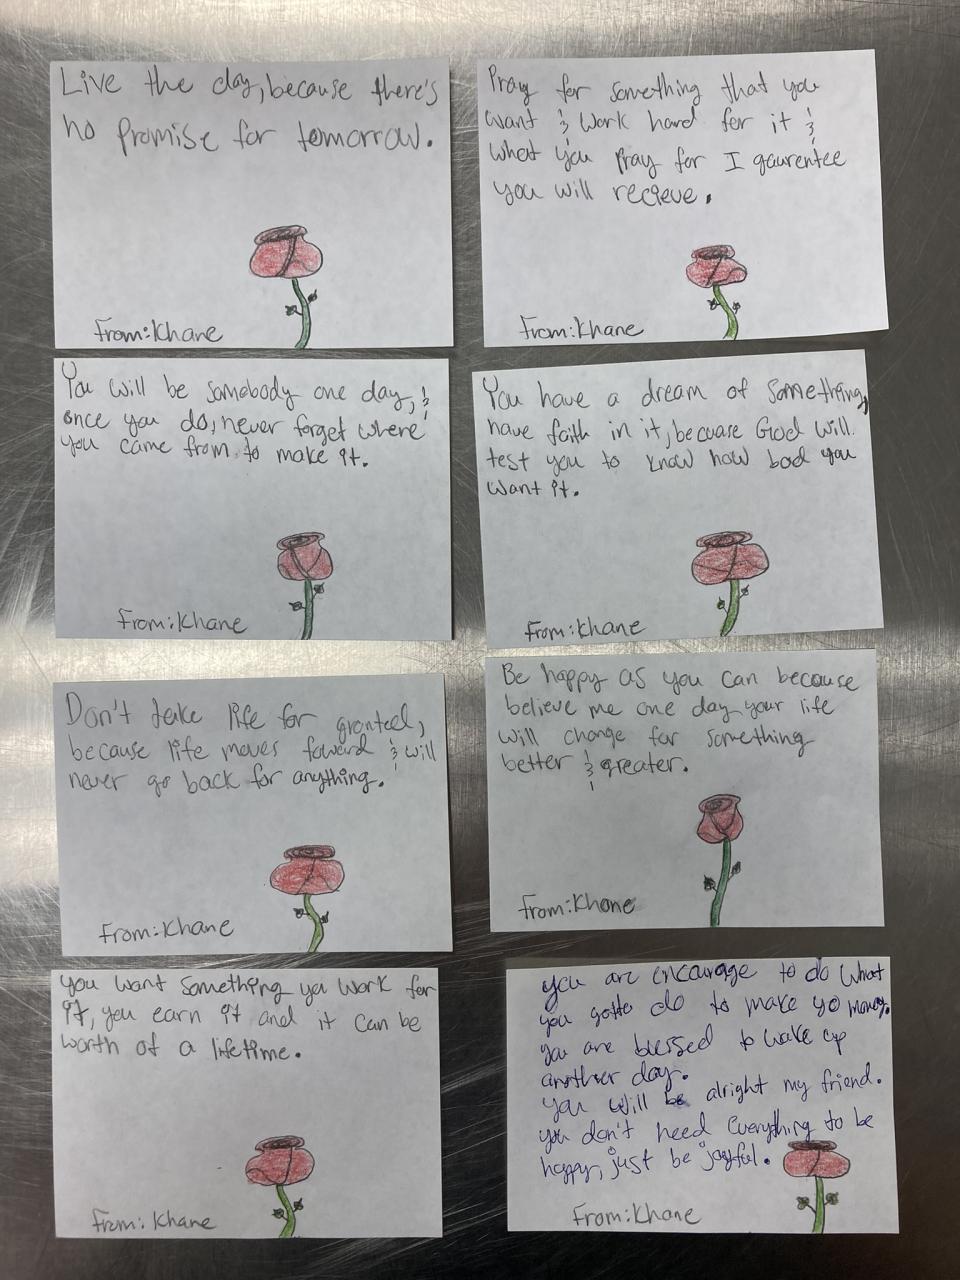 Live the day, because there's
no promise for tomorrow.
From: Khane
Pray for something that you
want & work hard for it &
what you pray for I gaurentee
you will recieve.
From: Khane
You will be somebody one day, &
once you do, never forget where
you came from to make it.
From: Khane
You have a dream of something,
have faith in it, becuase God will
test you to know how bad you
want it.
From: Khane
Don't take life for granted,
because life moves foward & will
never go back for anything.
From: Khane
Be happy as you can because
believe me one day your life
will change for something
better & greater.
From: Khane
you want something you work for
it, you earn it and it can be
worth of a lifetime.
From: Khane
you are encourage to do what
you gotta do to make yo money.
you are blessed to wake up
another day.
you will be alright my friend.
you don't need everything to be
happy, just be joyful.
From: Khane